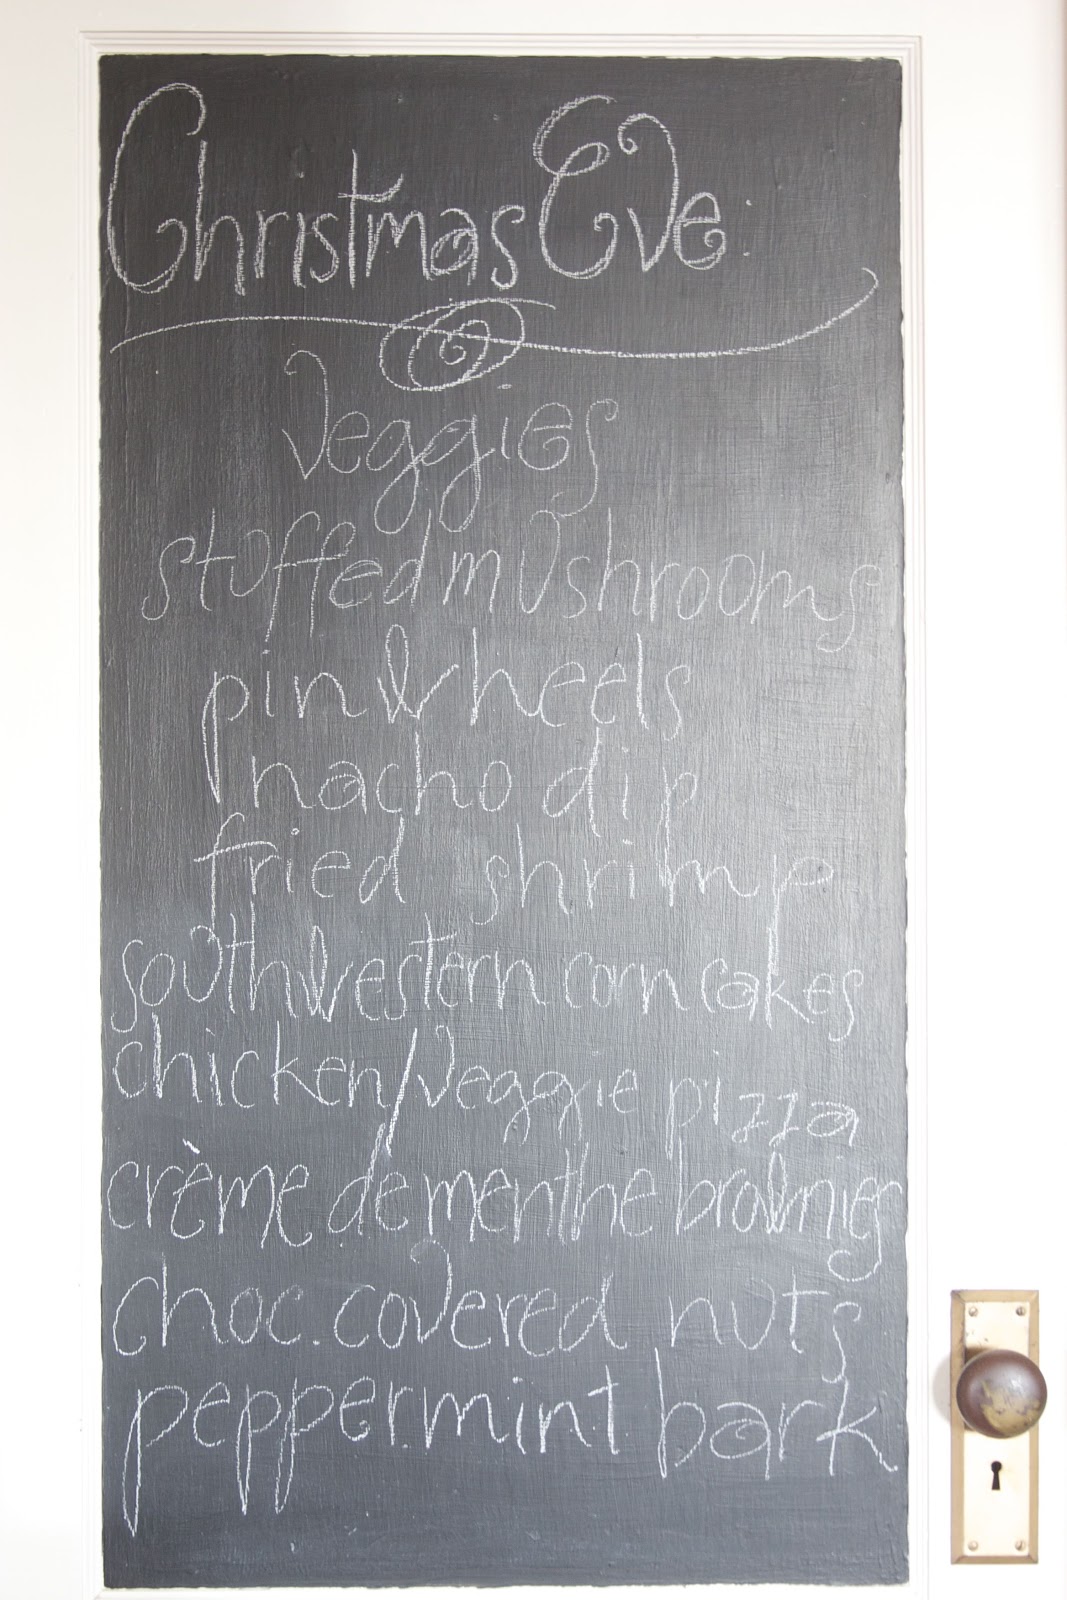 Christmas Eve:
Veggies
stuffed mushrooms
pinwheels
nacho dip
fried shrimp
southwestern corn cakes
chicken/veggie pizza
crème de menthe brownies
choc. covered nuts
peppermint bark